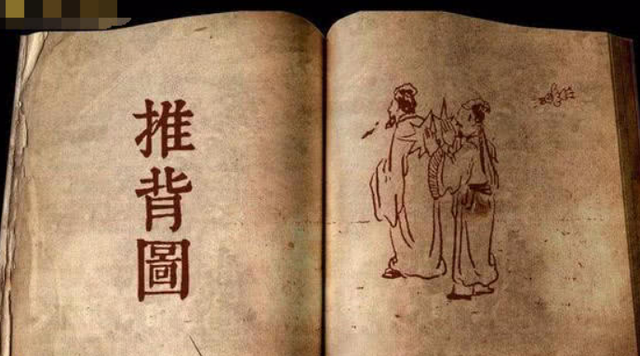 推背圖